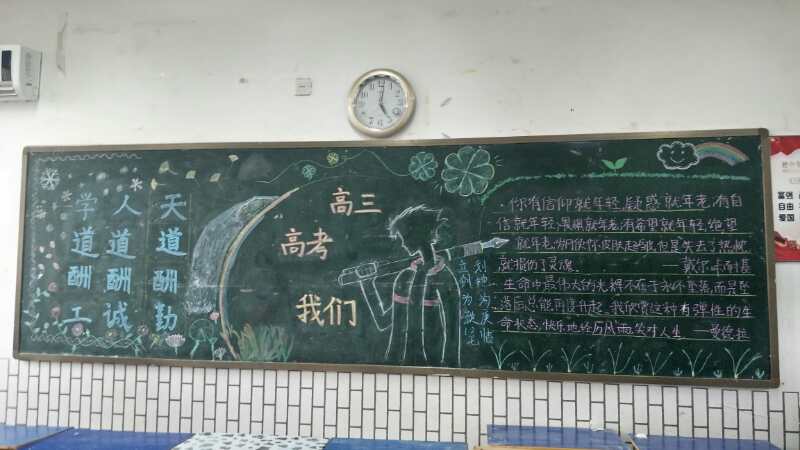 天道酬勤
人道酬诚
学道酬工
高三
高考
我们
·你有信仰就年轻,疑惑就年老,有自
信就年轻,畏惧就年老,有希望就年轻,绝望
就年老,岁月使你皮肤起皱,但是失去了热忱
就损伤了灵魂。 ——戴尔·卡耐基
·生命中最伟大的光辉不在于永不坠落,而是坠
落后总能再度升起,我欣赏这种有弹性的生
命状态,快乐地经历风雨,笑对人生 ——曼德拉
富强
自由
爱国